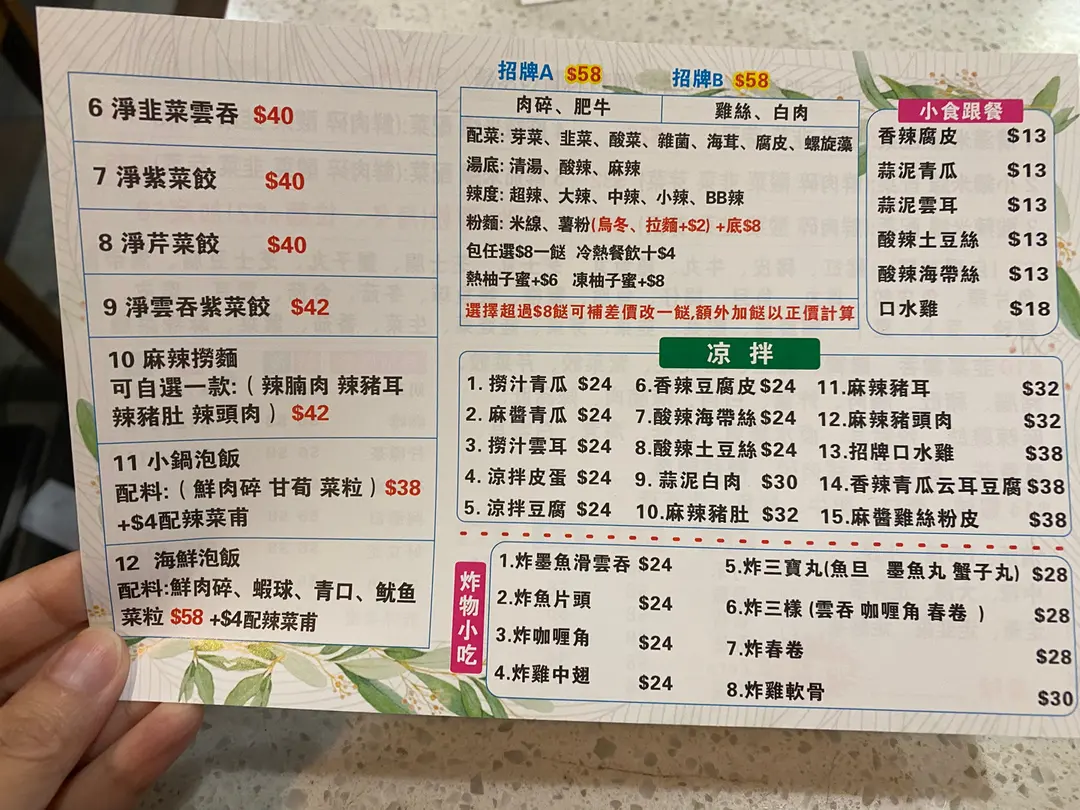 6 淨韭菜雲吞 $40
7 淨紫菜餃 $40
8 淨芹菜餃 $40
9 淨雲吞紫菜餃 $42
10 麻辣撈麵
可自選一款:(辣腩肉 辣豬耳
辣豬肚 辣頭肉) $42
11 小鍋泡飯
配料:(鮮肉碎 甘荀 菜粒) $38
+$4配辣菜甫
12 海鮮泡飯
配料:鮮肉碎、蝦球、青口、魷鱼
菜粒 $58 +$4配辣菜甫
招牌A $58 招牌B $58
肉碎、肥牛 雞絲、白肉
配菜: 芽菜、韭菜、酸菜、雜菌、海茸、腐皮、螺旋藻
湯底: 清湯、酸辣、麻辣
辣度: 超辣、大辣、中辣、小辣、BB辣
粉麵: 米線、薯粉(烏冬、拉麵+$2) +底$8
包任選$8一餸 冷熱餐飲十$4
熱柚子蜜+$6 凍柚子蜜+$8
選擇超過$8餸可補差價改一餸,額外加餸以正價計算
小食跟餐
香辣腐皮 $13
蒜泥青瓜 $13
蒜泥雲耳 $13
酸辣土豆絲 $13
酸辣海帶絲 $13
口水雞 $18
凉 拌
1. 撈汁青瓜 $24 6.香辣豆腐皮 $24 11.麻辣豬耳 $32
2. 麻醬青瓜 $24 7.酸辣海帶絲 $24 12.麻辣豬頭肉 $32
3. 撈汁雲耳 $24 8.酸辣土豆絲 $24 13.招牌口水雞 $38
4. 涼拌皮蛋 $24 9. 蒜泥白肉 $30 14.香辣青瓜云耳豆腐 $38
5. 涼拌豆腐 $24 10.麻辣豬肚 $32 15.麻醬雞絲粉皮 $38
炸物小吃
1.炸墨魚滑雲吞 $24 5.炸三寶丸(魚旦 墨魚丸 蟹子丸) $28
2.炸魚片頭 $24 6.炸三樣 (雲吞 咖喱角 春卷 ) $28
3.炸咖喱角 $24 7.炸春卷 $28
4.炸雞中翅 $24 8.炸雞軟骨 $30